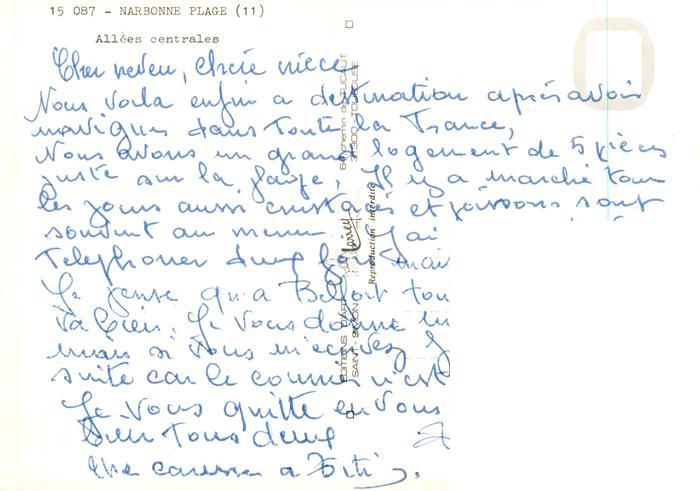 15 087 - NARBONNE PLAGE (11)
Allées centrales
Cher neveu, chère nièce
Nous voila enfin a destination après avoir
navigué dans toute la France,
Nous avons un grand logement de 5 pièces
juste sur la plage, Il y a marché tous
les jours aussi crustacés et poissons sont
souvent au menu J'ai
Telephoner deux fois mais
Je pense qu'a Belfort tou
va bien. Je vous donne
mais si vous m'ecrivez
suite car le courrier n'est
Je vous quitte en vous
bien tous deux
Une caresse a
EDITIONS D'ART
SAINT-SIMON
chemin de
31300 - TOULOUSE
Reproduction interdite